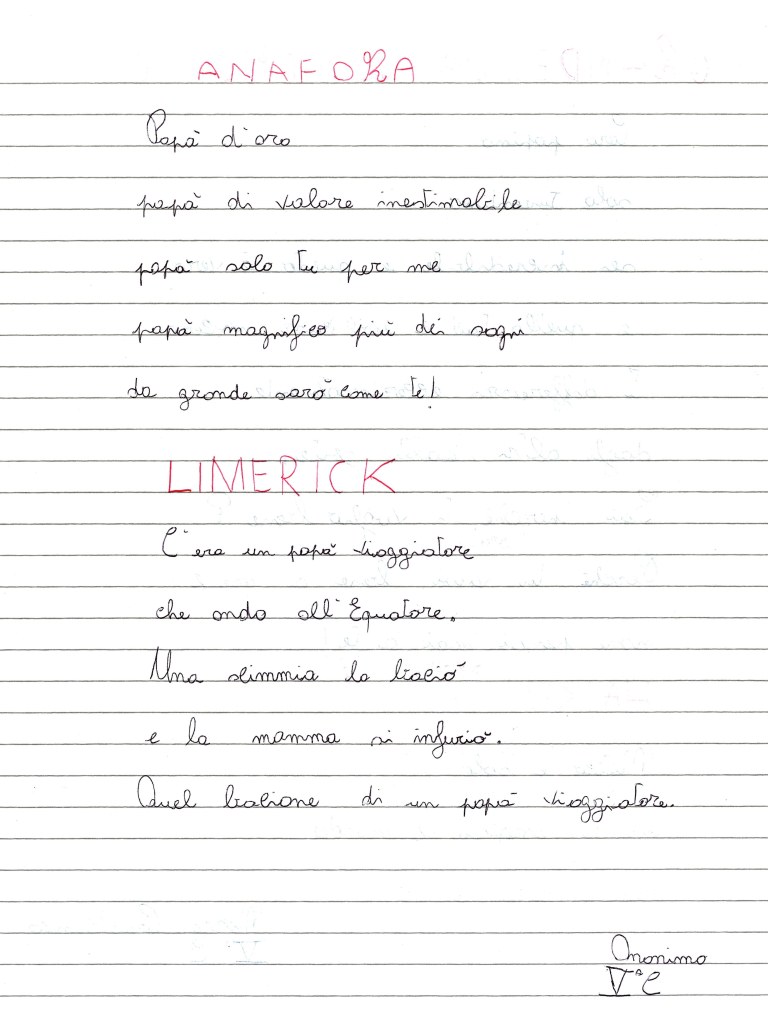 ANAFORA
Papà d'oro
papà di valore inestimabile
papà solo tu per me
papà magnifico più dei sogni
da grande sarò come te!
LIMERICK
C'era un papà viaggiatore
che andò all'Equatore.
Una scimmia lo baciò
e la mamma si infuriò.
Quel bacione di un papà viaggiatore.
Anonimo
Vª C